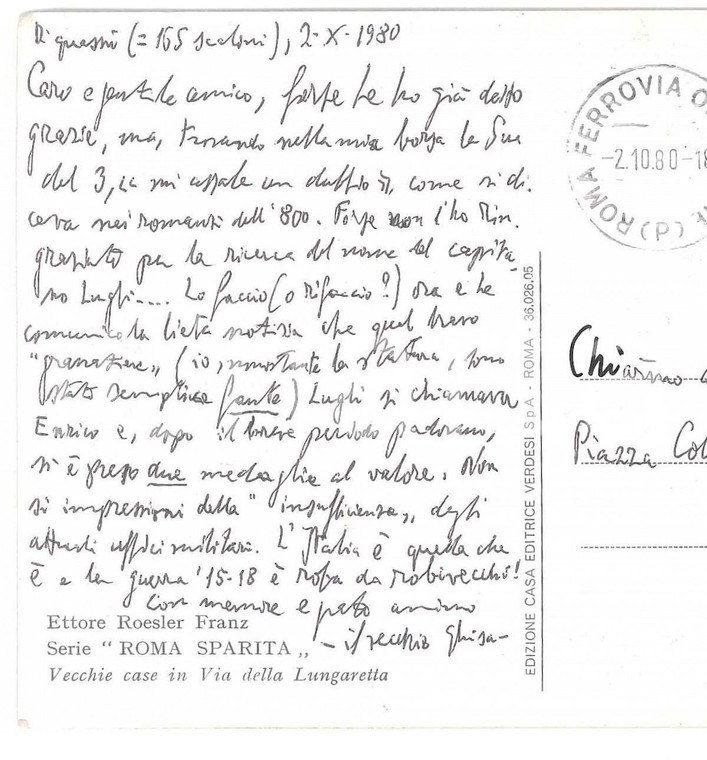 Di quassù (= 165 scaloni), 2-X-1980
Caro e gentile amico, forse Le ho già detto
grazie, ma, trovando nella mia borsa la Sua
del 3, mi assale un dubbio, come si di.
ceva nei romanzi dell'800. Forse non l'ho rin.
graziato per la ricerca del nome del capita
no Lughi.... Lo faccio (o rifaccio?) ora e Le
comunico la lieta notizia che quel bravo
"granatiere„ (io, nonostante la statura, sono
stato semplice fante) Lughi si chiamava
Enrico e, dopo il breve periodo padovano,
si è preso due medaglie al valore. Non
si impressioni della "insufficienza„ degli
attuali uffici militari. L'Italia è quella che
è e la guerra '15-18 è roba da robivecchi!
Con memore e grato animo
- il vecchio Ghisa-
Ettore Roesler Franz
Serie "ROMA SPARITA„
Vecchie case in Via della Lungaretta
EDIZIONE CASA EDITRICE VERDESI S.p.A - ROMA - 36.026.05
ROMA FERROVIA
-2.10.80-18
(P)
Chiar.mo
Piazza Col